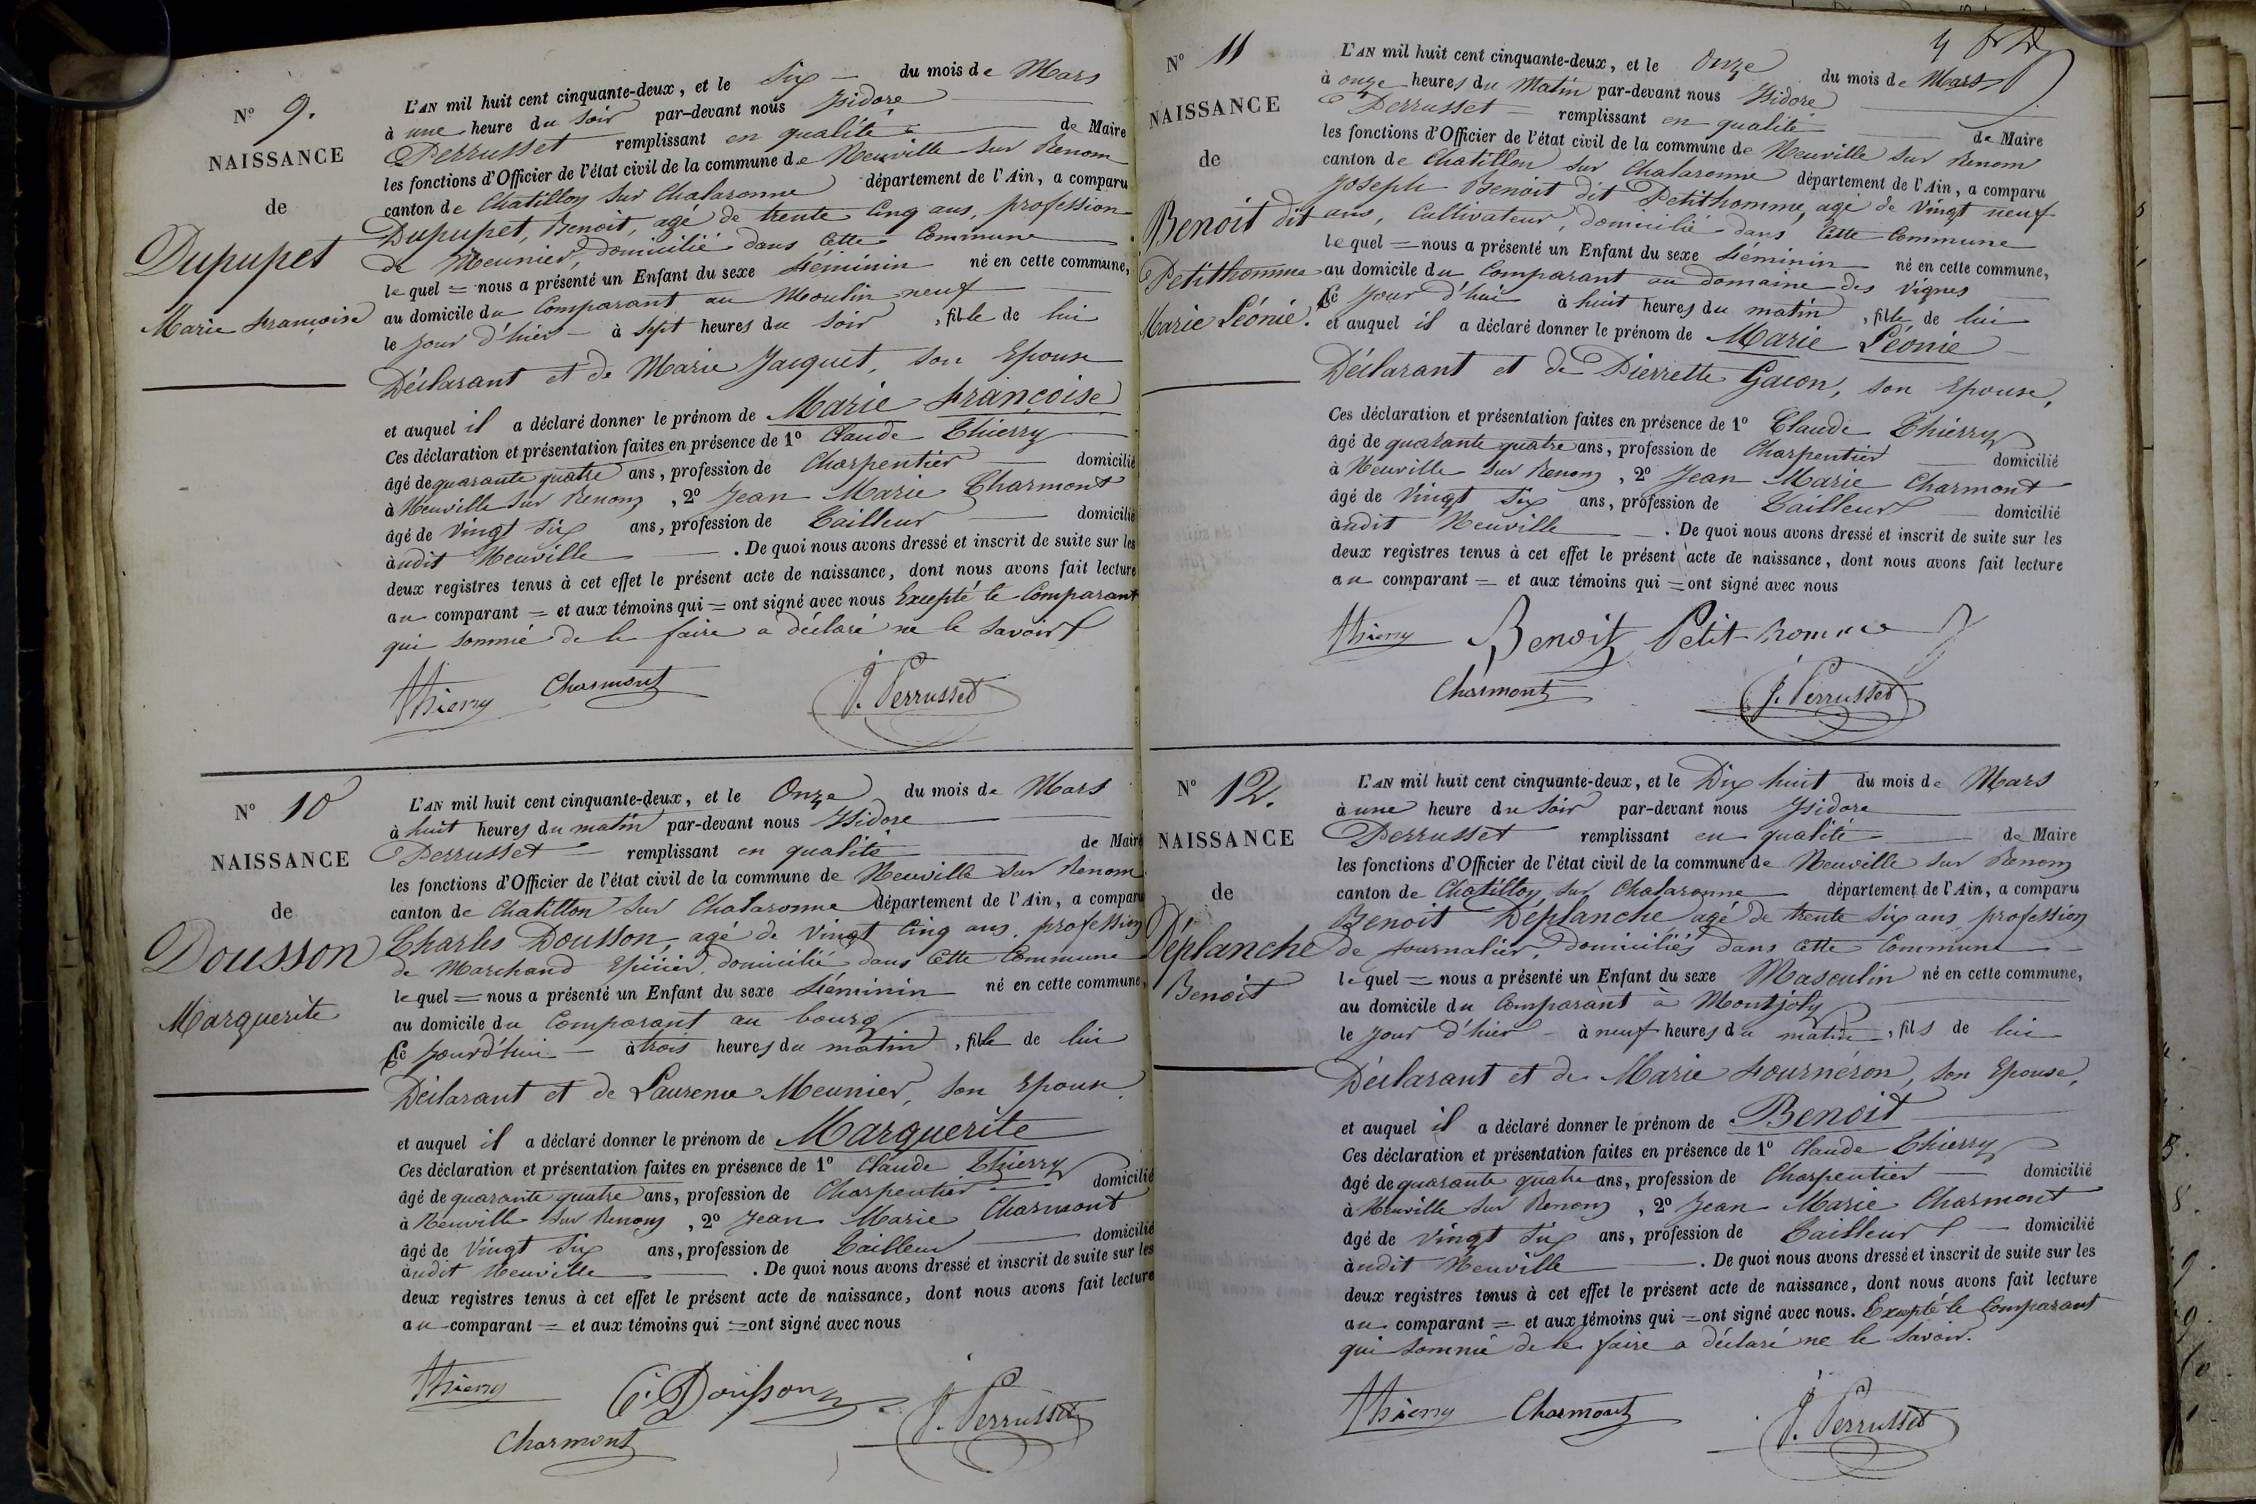 N° 9.
NAISSANCE
de
Dupupet
Marie Françoise
L'AN mil huit cent cinquante-deux, et le Six du mois de Mars
à une heure du Soir par-devant nous Isidore
Perrusset remplissant en qualité de Maire
les fonctions d'Officier de l'état civil de la commune de Neuville Sur Renom
canton de Chatillon Sur Chalaronne département de l'Ain, a comparu
Dupupet, Benoit, agé de trente Cinq ans, profession
de Meunier, domicilié dans Cette Commune
lequel = nous a présenté un Enfant du sexe Féminin né en cette commune,
au domicile du Comparant au Moulin neuf
le Jour d'hier à Sept heures du Soir, fille de lui
Déclarant et de Marie Jacquet, Son Epouse
et auquel il a déclaré donner le prénom de Marie Françoise
Ces déclaration et présentation faites en présence de 1° Claude Thierry
âgé de quarante quatre ans, profession de Charpentier domicilié
à Neuville Sur Renom, 2° Jean Marie Charmont
âgé de Vingt Six ans, profession de Tailleur domicilié
àudit Neuville. De quoi nous avons dressé et inscrit de suite sur les
deux registres tenus à cet effet le présent acte de naissance, dont nous avons fait lecture
au comparant = et aux témoins qui = ont signé avec nous Excepté le Comparant
qui Sommé de le faire a déclaré ne le Savoir
Thierry Charmont J. Perrusset
N° 10
NAISSANCE
de
Dousson
Marguerite
L'AN mil huit cent cinquante-deux, et le Onze du mois de Mars
à huit heures du matin par-devant nous Isidore
Perrusset remplissant en qualité de Maire
les fonctions d'Officier de l'état civil de la commune de Neuville Sur Renom
canton de Chatillon Sur Chalaronne département de l'Ain, a comparu
Charles Dousson, agé de Vingt Cinq ans, profession
de Marchand Epicier, domicilié dans Cette Commune
lequel = nous a présenté un Enfant du sexe Féminin né en cette commune,
au domicile du Comparant au bourg
Ce jourd'hui à trois heures du matin, fille de lui
Déclarant et de Laurence Meunier, Son Epouse.
et auquel il a déclaré donner le prénom de Marguerite
Ces déclaration et présentation faites en présence de 1° Claude Thierry
âgé de quarante quatre ans, profession de Charpentier domicilié
à Neuville Sur Renom, 2° Jean Marie Charmont
âgé de Vingt Six ans, profession de Tailleur domicilié
àudit Neuville. De quoi nous avons dressé et inscrit de suite sur les
deux registres tenus à cet effet le présent acte de naissance, dont nous avons fait lecture
au comparant = et aux témoins qui = ont signé avec nous
Thierry C. Dousson J. Perrusset
Charmont
N° 11
NAISSANCE
de
Benoit dit
Petithomme
Marie Léonie.
L'AN mil huit cent cinquante-deux, et le Onze du mois de Mars
à onze heures du Matin par-devant nous Isidore
Perrusset remplissant en qualité de Maire
les fonctions d'Officier de l'état civil de la commune de Neuville Sur Renom
canton de Chatillon Sur Chalaronne département de l'Ain, a comparu
Joseph Benoit dit Petithomme, agé de Vingt neuf
ans, Cultivateur, domicilié dans Cette Commune
lequel = nous a présenté un Enfant du sexe Féminin né en cette commune,
au domicile du Comparant au domaine des Vignes
Ce Jour d'hui à huit heures du matin, fille de lui
et auquel il a déclaré donner le prénom de Marie Léonie
Déclarant et de Pierrette Gacon, Son Epouse,
Ces déclaration et présentation faites en présence de 1° Claude Thierry
âgé de quarante quatre ans, profession de Charpentier domicilié
à Neuville Sur Renom, 2° Jean Marie Charmont
âgé de Vingt Six ans, profession de Tailleur domicilié
àudit Neuville. De quoi nous avons dressé et inscrit de suite sur les
deux registres tenus à cet effet le présent acte de naissance, dont nous avons fait lecture
au comparant = et aux témoins qui = ont signé avec nous
Thierry Benoit Petit homme
Charmont J. Perrusset
N° 12.
NAISSANCE
de
Déplanche
Benoit
L'AN mil huit cent cinquante-deux, et le Dix huit du mois de Mars
à une heure du Soir par-devant nous Isidore
Perrusset remplissant en qualité de Maire
les fonctions d'Officier de l'état civil de la commune de Neuville Sur Renom
canton de Chatillon Sur Chalaronne département de l'Ain, a comparu
Benoit Déplanche agé de trente Six ans profession
de Journalier, domiciliés dans Cette Commune
lequel = nous a présenté un Enfant du sexe Masculin né en cette commune,
au domicile du Comparant à Montjoly
le Jour d'hier à neuf heures du matin, fils de lui
Déclarant et de Marie Fournéron, Son Epouse,
et auquel il a déclaré donner le prénom de Benoit
Ces déclaration et présentation faites en présence de 1° Claude Thierry
âgé de quarante quatre ans, profession de Charpentier domicilié
à Neuville Sur Renom, 2° Jean Marie Charmont
âgé de Vingt Six ans, profession de Tailleur domicilié
àudit Neuville. De quoi nous avons dressé et inscrit de suite sur les
deux registres tenus à cet effet le présent acte de naissance, dont nous avons fait lecture
au comparant = et aux témoins qui = ont signé avec nous. Excepté le Comparant
qui Sommé de le faire a déclaré ne le Savoir.
Thierry Charmont J. Perrusset